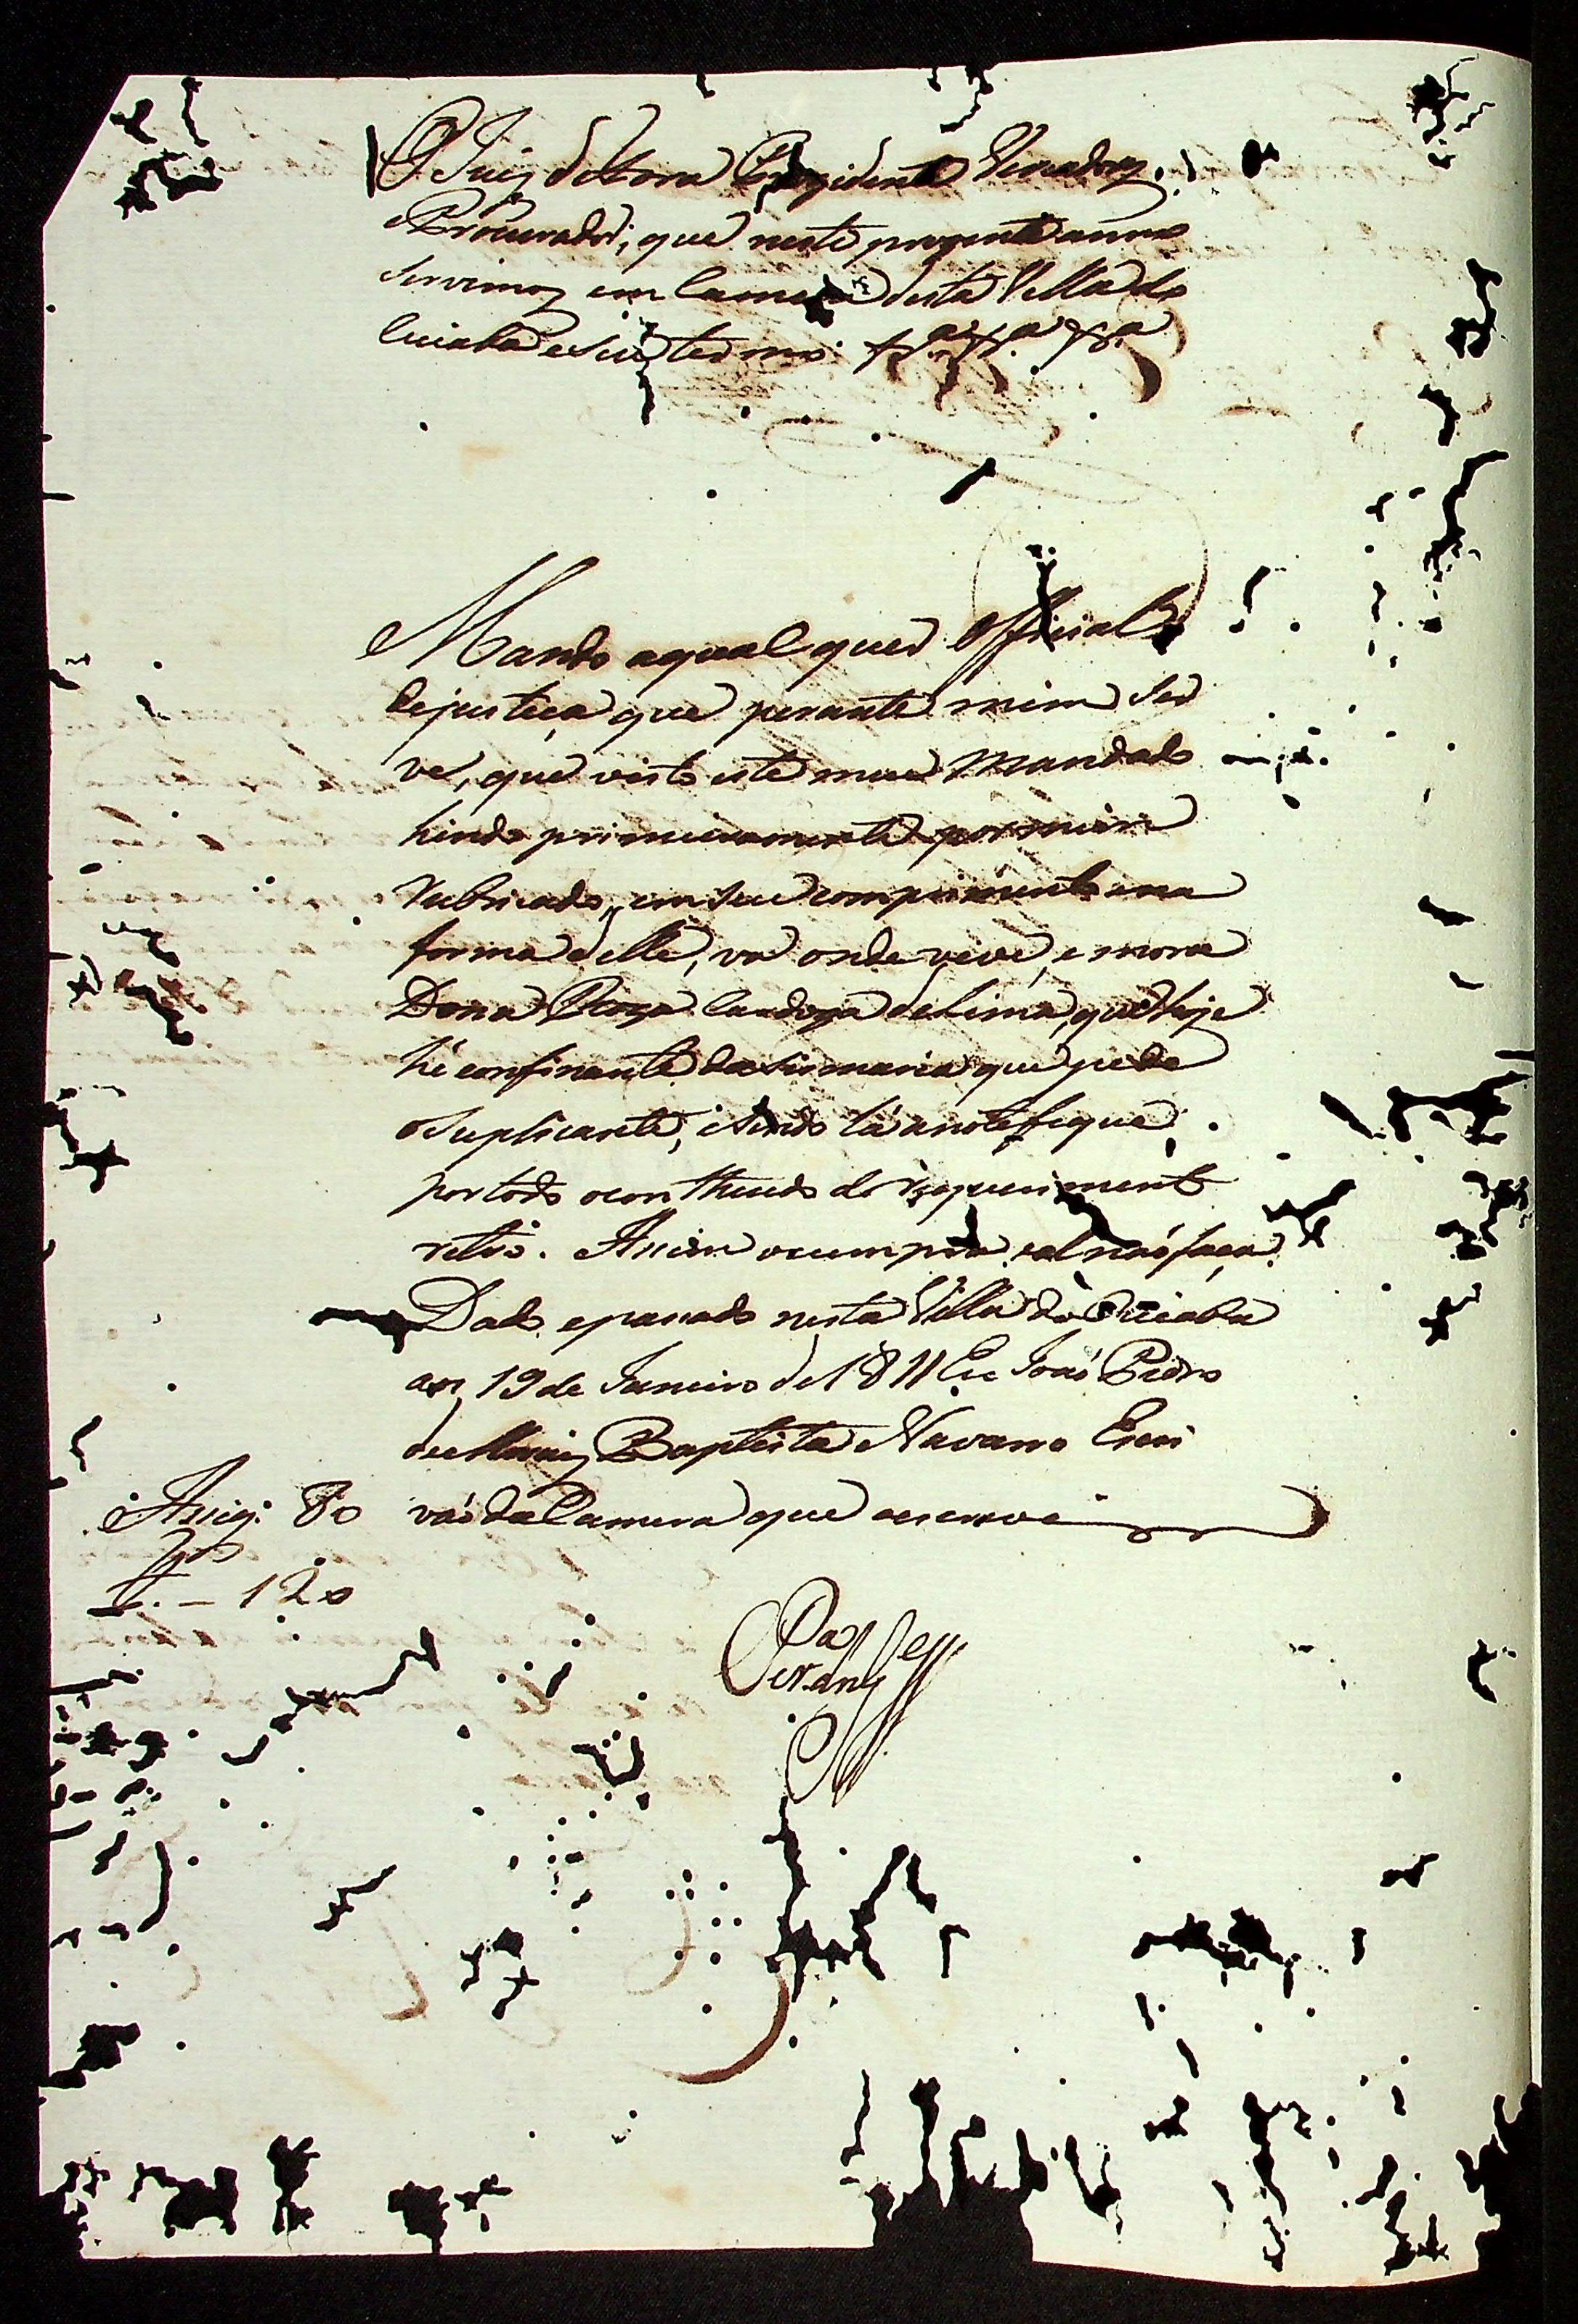 O Juiz de Fora Prezidente Veriadorez,
e Procurador, que neste prezente anno
Servimoz em Camera desta Villa do
Cuiaba e Seu termo &.ª &.ª &.ª
Mando aqual quer Official
de justiça que perante mim Ser
ve, que visto este meu Mandado
hindo primeiramente por mim
Rubricado, em seu comprimento e na
forma delle, vá onde vive, e mora
Dona Roza Cardoza de Lima, que hoje
hé confinante da Sismaria que pede
o Suplicante, e Sendo lá a notefique
por todo o contheudo do requerimento
retro. Assim o cumpra, e al não faça.
Dado e passado nesta Villa do Cuiaba
aos 19 de Janeiro de 1811 Eu João Pedro
Baptista Navarro Escri
vão da Camera que o escrevi
Assig. 80
120